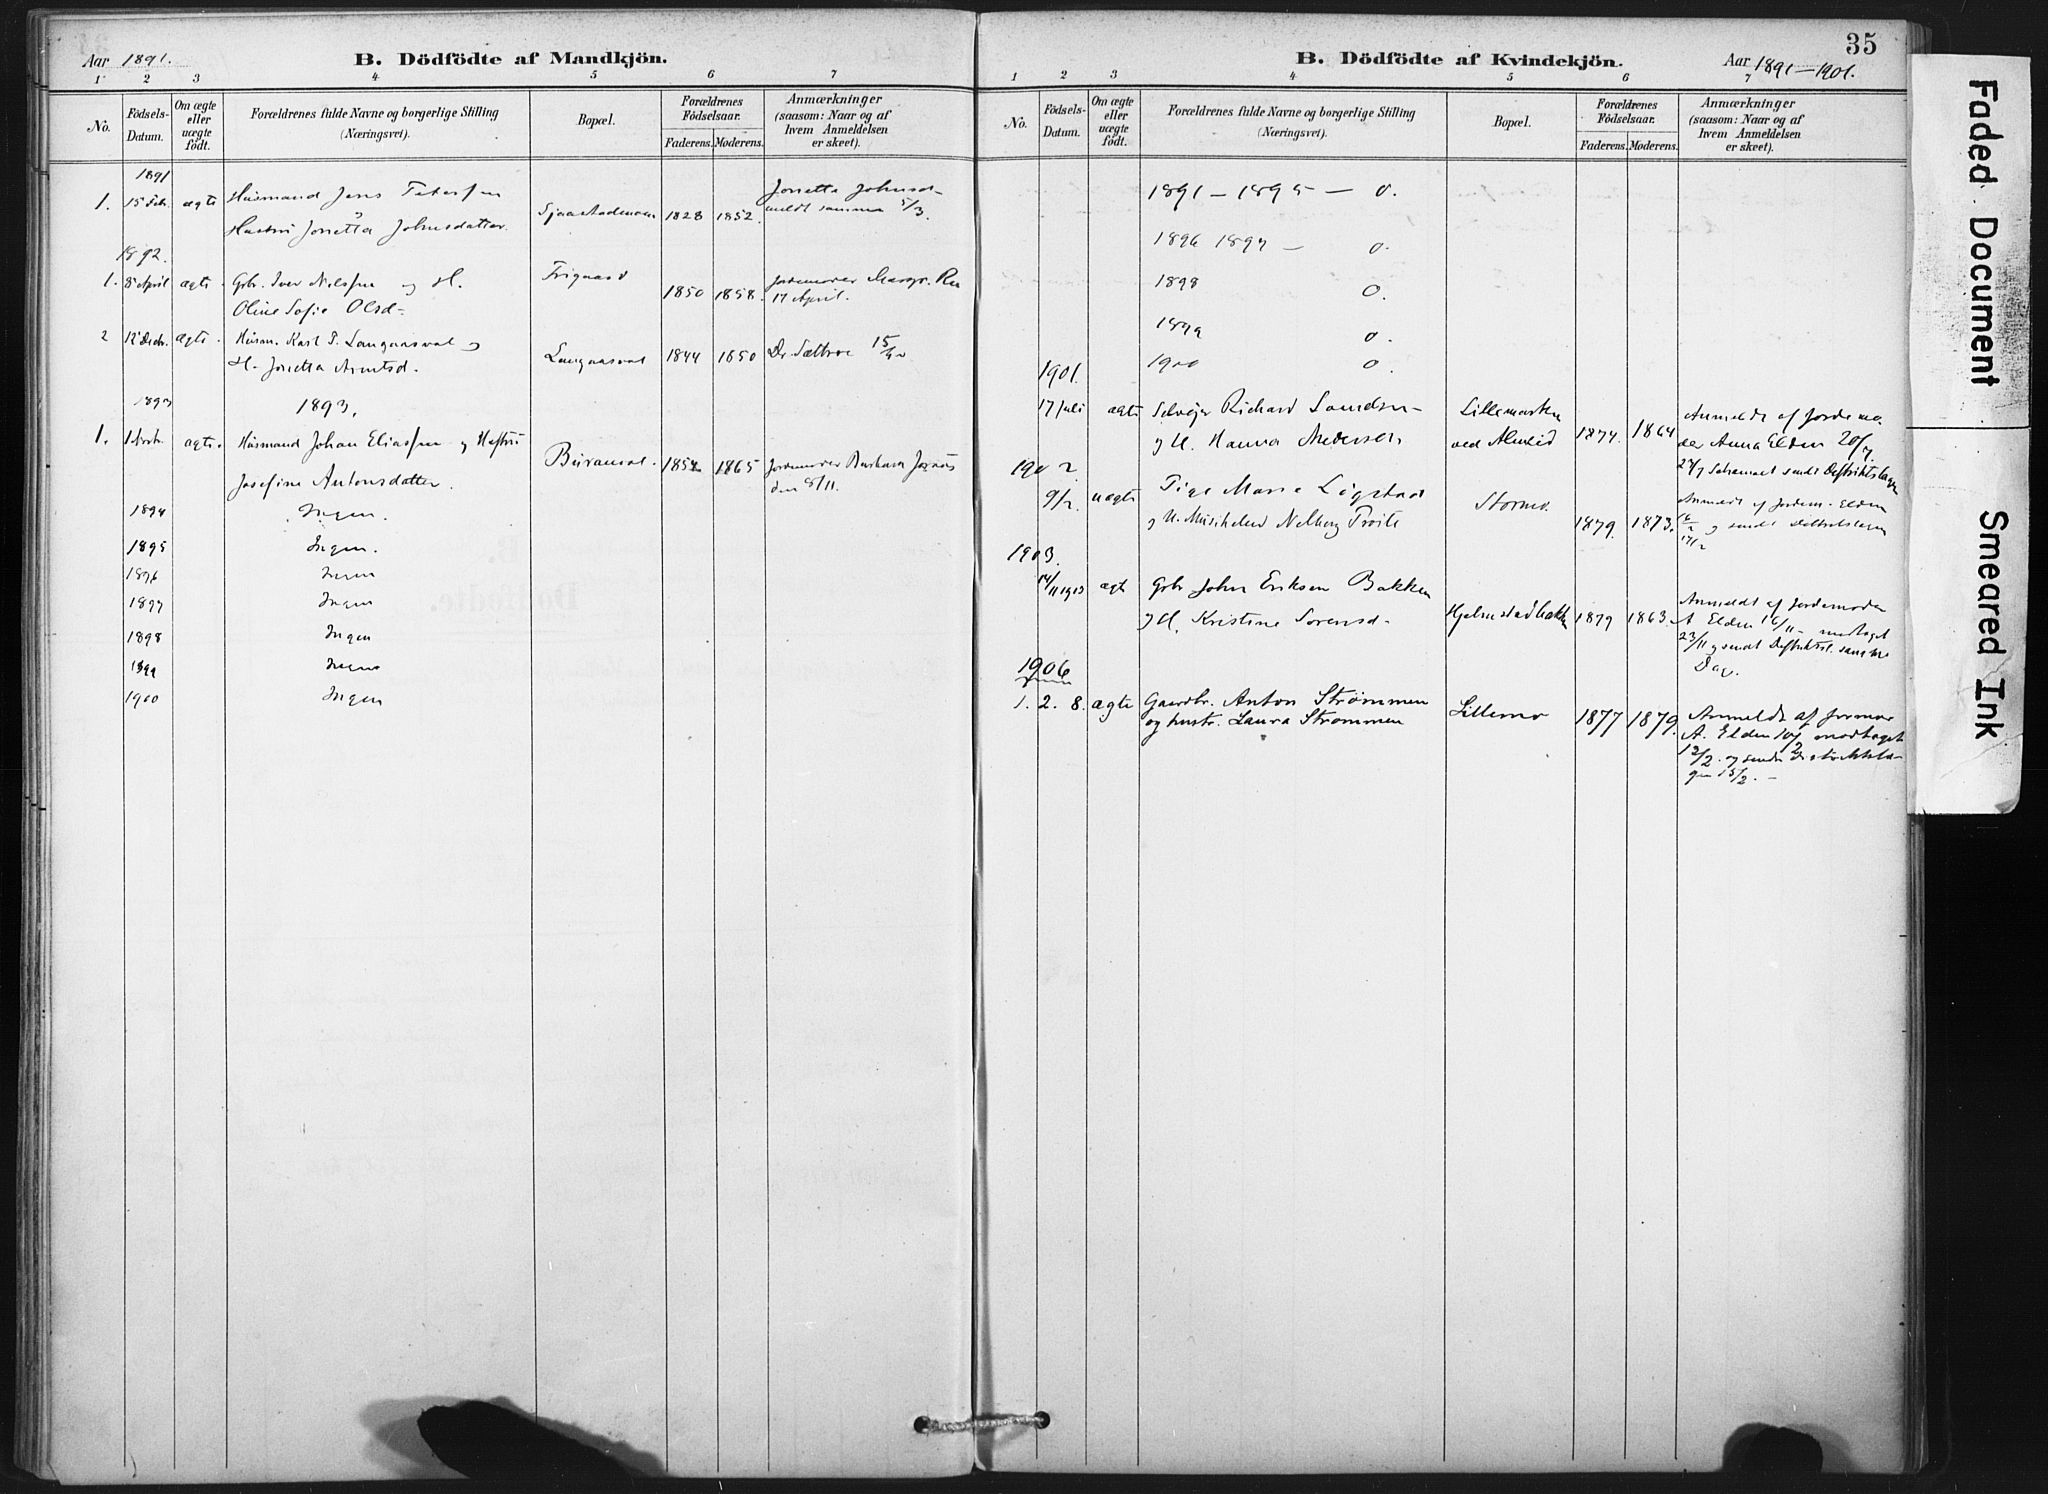 Aar 1891. B. Dödfödte af Mandkjön.
1 2 3 4 5 6 7
No. Födsels-Datum. Om ægte eller uægte födt. Forældrenes fulde Navne og borgerlige Stilling (Næringsvei). Bopæl. Forældrenes Födselsaar. Faderens. Moderens. Anmærkninger (saasom: Naar og af hvem Anmeldelsen er skeet).
1891
1. 15 Febr. ægte Husmand Jens Petersen 1828 1852. Jonetta Johnsd-
Hustru Jonetta Johnsdatter. meldt samme 5/3.
1892.
1. 8 April ægte. Gbr. Iver Nilssen og H. Frigaard 1850 1858. Jordemoder Margr.
Oline Sofie Olsd- 17 April.
2 12 Decbr. ægte. Husm. Karl P. Langaasval og Langaasval 1844 1850 Dr. 15/
H. Jonetta Arntsd.
1893 1893.
1. 1 ægte. Husmand Johan Eliassen og Hustru Buransval. 1865 Jordemoder Barbara
Josefine Antonsdatter. den 8/11.
1894 Ingen.
1895 Ingen.
1896 Ingen
1897 Ingen
1898 Ingen
1899 Ingen
1900 Ingen
35
B. Dödfödte af Kvindekjön. Aar 1891-1901.
1 2 3 4 5 6 7
No. Födsels-Datum. Om ægte eller uægte födt. Forældrenes fulde Navne og borgerlige Stilling (Næringsvei). Bopæl. Forældrenes Födselsaar. Faderens. Moderens. Anmærkninger (saasom: Naar og af hvem Anmeldelsen er skeet).
1891 - 1895 - 0.
1896 1897 - 0.
1898 0.
1899 0.
1900 0.
1901.
17 Juli ægte Selvejer Richard 1874. 1864 Anmeldt af Jordemo-
og H. Hanna Andersen ved der Anna Elden 20/7.
27/7 Schemaet sendt Distriktslægen
1902
9/2. uægte Pige Marie Løgstad Stormo. 1879. 1873. Anmeldt af Jordem. Elden
og 16/2 og sendt Distriktslægen
17/2
1903.
14/11 1903 ægte Gbr John Eriksen Bakken Hjelmstadbakken 1879 1863. Anmeldt af Jordemoder
og H. Kristine Sorensd- A Elden 16/11 - modtaget
23/11 og sendt Distriktsl. samme
Dag.
1906
1. 2. 8. ægte Gaardbr. Anton Strømmen Lillemo 1877 1879. Anmeldt af Jormor
og hustr. Laura Strømmen A. Elden 10/2 modtaget
12/2. og sendt Distriktslæ-
gen 13/2. -
Faded Document Smeared Ink